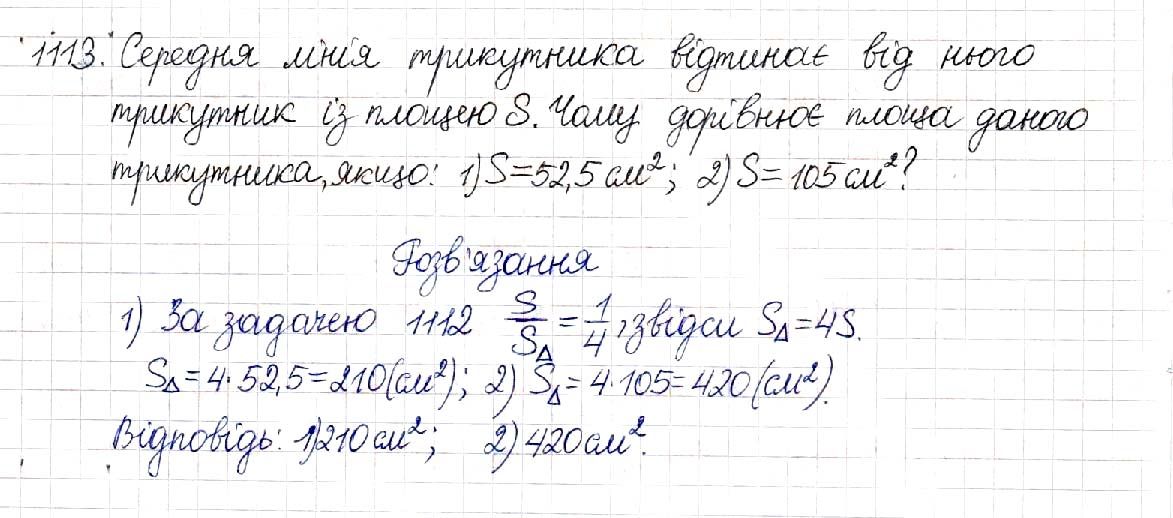 1113. Середня лінія трикутника відтинає від нього
трикутник із площею S. Чому дорівнює площа даного
трикутника, якщо: 1) S=52,5 см²; 2) S=105 см²?
Розв'язання
1) За задачею 1112 S/S△ = 1/4, звідси S△=4S.
S△=4·52,5=210(см²); 2) S△=4·105=420(см²).
Відповідь: 1)210 см²; 2) 420 см².